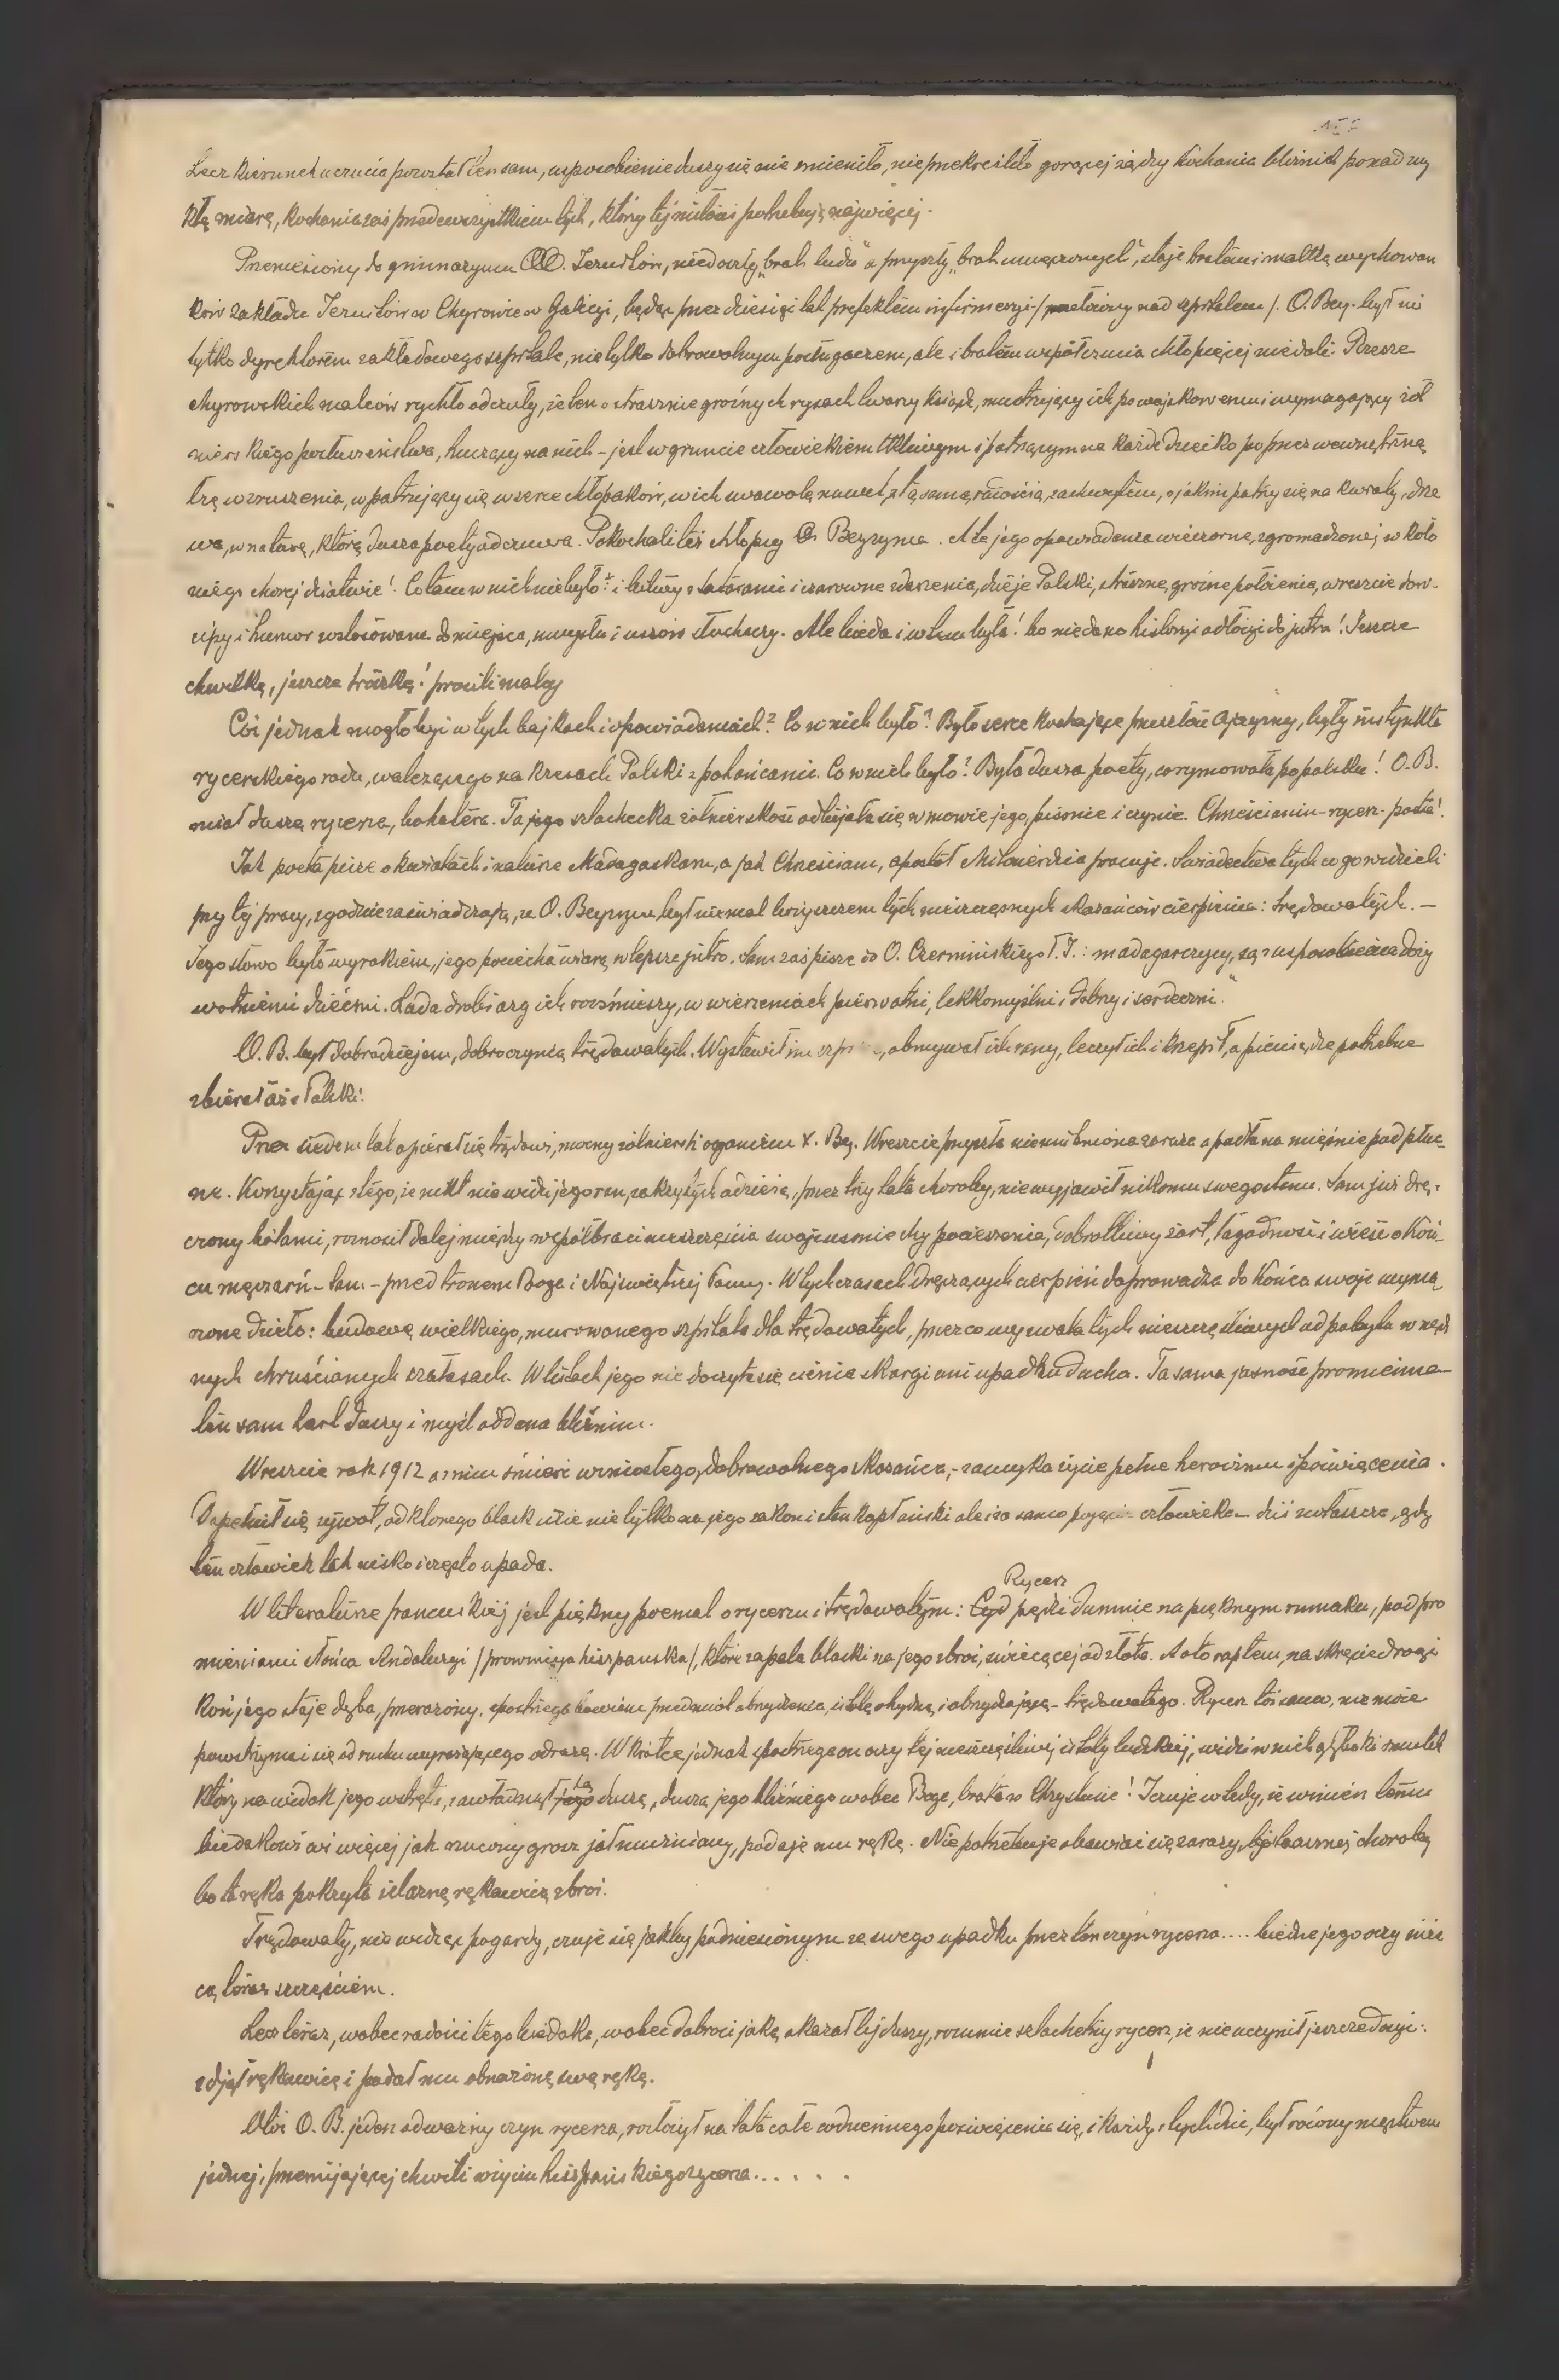 Lecz kierunek uczucia pozostał ten sam, usposobienie duszy się nie zmieniło, nie przekreśliło gorącej żądzy kochania bliźnich ponad zwy
kłą miarę, kochania zaś przedewszystkiem tych, którzy tej miłości potrzebują najwięcej.
Przeniesiony do gimnazyum OO. Jezuitów, niedoszły „brat ludu" a przyszły „brat umęczonych", staje bratem i matką wychowan
ków zakładu Jezuitów w Chyrowie w Galicyi, będąc przez dziesięć lat prefektem infirmeryi /nad szpitalem/. O. Bey. był nie
tylko dyrektorem zakładowego szpitala, nie tylko dobrowolnym posługaczem, ale i bratem współczucia chłopięcej niedoli. Rzesze
chyrowskich malców rychło odczuły, że ten o strasznie groźnych rysach twarzy ksiądz, musztrujący ich po wojskowemu i wymagający żoł
nierskiego posłuszeństwa, huczący na nich – jest w gruncie człowiekiem tkliwym i patrzącym na każde dziecko poprzez wewnętrzną
łzę wzruszenia, wpatrujący się w serce chłopaków, w ich swawolę nawet, z tą samą radością, zachwytem, z jakim patrzy się na kwiaty, drze
wa, w naturę, którą dusza poety odczuwa. Pokochali też chłopcy O. Beyzyma. A te jego opowiadania wieczorne, zgromadzonej w koło
niego chorej dziatwie! Co tam w nich nie było? i bitwy z tatarami i czarowne zdarzenia, dzieje Polski, straszne, groźne położenia, wreszcie dow-
cipy i humor zastosowane do miejsca, umysłu i uszów słuchaczy. Ale bieda i w tem była! bo nie dano historyi odłożyć do jutra! Jeszcze
chwilkę, jeszcze troszkę! prosili malcy
Cóż jednak mogło być w tych bajkach i opowiadaniach? Co w nich było? Było serce kochające przeszłość Ojczyzny, były instynkta
rycerskiego rodu, walczącego na kresach Polski z pohańcami. Co w nich było? Była dusza poety, co rymowała po polsku! O. B.
miał duszę rycerza, bohatera. Ta jego szlachecka żołnierskość odbijała się w mowie jego, piśmie i czynie. Chrześcianin – rycerz – poeta!
Jak poeta pisze o kwiatach i naturze Madagaskaru, a jak Chrześcianin, apostoł Miłosierdzia pracuje. Świadectwa tych co go widzieli
przy tej pracy, zgodnie zaświadczają, że O. Beyzym był niemal bożyszczem tych nieszczęsnych skazańców cierpienia: trędowatych. –
Jego słowo było wyrokiem, jego pociecha wiarą w lepsze jutro. Sam zaś pisze do O. Czermińskiego T. J.: madagarczycy, są z usposobienia doży
wotniemi dziećmi. Lada drobiazg ich rozśmieszy, w wierzeniach pierwotni, lekkomyślni i dobrzy i serdeczni."
O. B. był dobrodziejem, dobroczyńcą trędowatych. Wystawił im , obmywał ich rany, leczył ich i krzepił, a pieniądze potrzebne
zbierał aż z Polski.
Przez siedem lat opierał się trądowi, mocny żołnierski organizm X. Bey. Wreszcie przyszła nieunikniona zaraza opadła na mięśnie pod płuc
ne. Korzystając z tego, że nikt nie widzi jego ran, zakrytych odzieżą, przez trzy lata choroby, nie wyjawił nikomu swego stanu. Sam już drę-
czony bólami, roznosił dalej między współbraci nieszczęścia swoje uśmiechy pocieszenia, dobrotliwy żart, łagodność i wieść o koń-
cu męczarń – tam – przed tronem Boga i Najświętszej Panny. W tych czasach dręczących cierpień doprowadza do końca swoje wyma
rzone dzieło: budowę wielkiego, murowanego szpitala dla trędowatych, przez co wyzwala tych nieszczęśliwych od pobytu w nędz
nych chruścianych szałasach. W listach jego nie doczyta się cienia skargi ani upadku ducha. Ta sama jasność promienna
ten sam hart duszy i myśl oddana bliźnim.
Wreszcie rok 1912 a z nim śmierć wzniosłego, dobrowolnego skazańca, – zamyka życie pełne heroizmu i poświęcenia.
Dopełnił się żywot, od którego blask idzie nie tylko na jego zakon i stan kapłański ale i za samo pojęcie człowieka – dziś zwłaszcza, gdy
ten człowiek tak nisko i często upada.
W literaturze francuskiej jest piękny poemat o rycerzu i trędowatym: Cyd Rycerz pędzi dumnie na pięknym rumaku, pod pro
mieniami słońca Andaluzyi /prowincya hiszpańska/, które zapala blaski na jego zbroi, świecącej od złota. A oto raptem, na skręcie drogi
koń jego staje dęba, przerażony, spostrzega bowiem przedmiot obrzydzenia, istotę ohydną i obrzydzającą – trędowatego. Rycerz toż samo, nie może
powstrzymać się od ruchu wyrażającego odrazę. W krótce jednak spostrzega on oczy tej nieszczęśliwej istoty ludzkiej, widzi w nich głęboki smutek
który na widok jego wstrętu, zawładnął jego tą duszą, duszą jego bliźniego wobec Boga, brata w Chrystusie! Czuje wtedy, że winien temu
biedakowi coś więcej jak rzucony grosz jałmużniany, podaje mu rękę. Nie potrzebuje obawiać się zarazy, tej strasznej choroby
bo ta ręka pokryta żelazną rękawicą zbroi.
Trędowaty, nie widząc pogardy, czuje się jakby podniesionym ze swego upadku przez ten czyn rycerza.... biedne jego oczy świe
cą teraz szczęściem.
Lecz teraz, wobec radości tego biedaka, wobec dobroci jaką okazał tej duszy, rozumie szlachetny rycerz, że nie uczynił jeszcze dosyć:
zdjął rękawicę i podał mu obnażoną swą rękę.
Otóż O. B. jeden odważny czyn rycerza, rozłożył na lata całe codziennego poświęcenia się, i każdy z tych dni, był równy męstwem
jednej, przemijającej chwili w życiu hiszpańskiego rycerza......